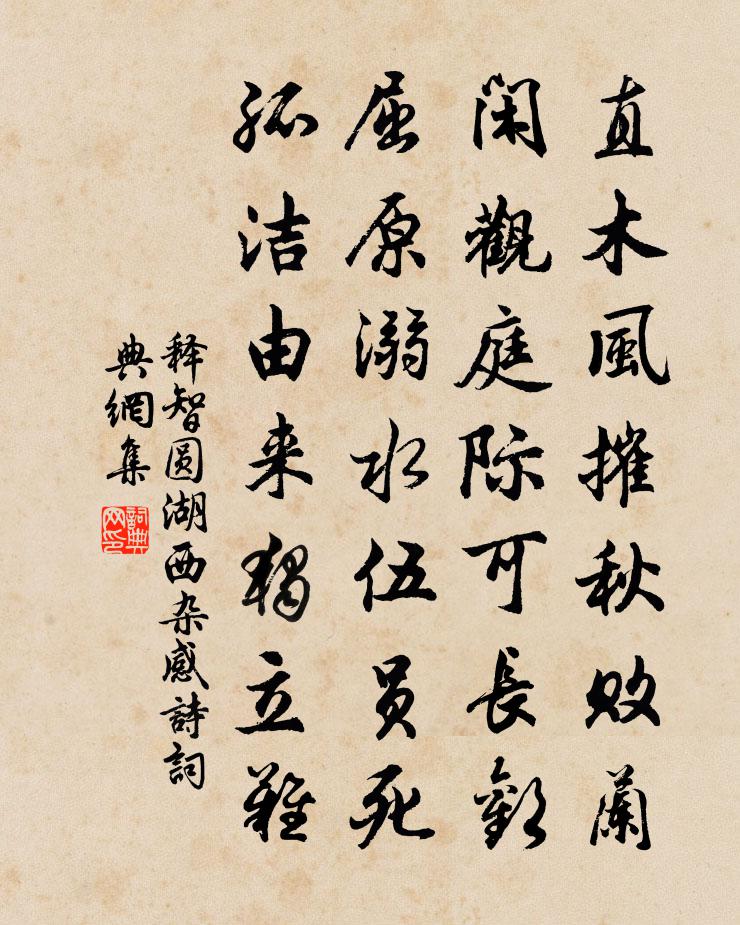 直木風摧秋败蘭
閑觀庭际可長歎
屈原溺水伍员死
孤洁由来獨立難
释智圆湖西杂感詩詞
典網集
詞典网印